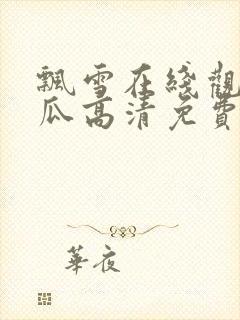 飄雪在綫觀
瓜高清免費
華夜